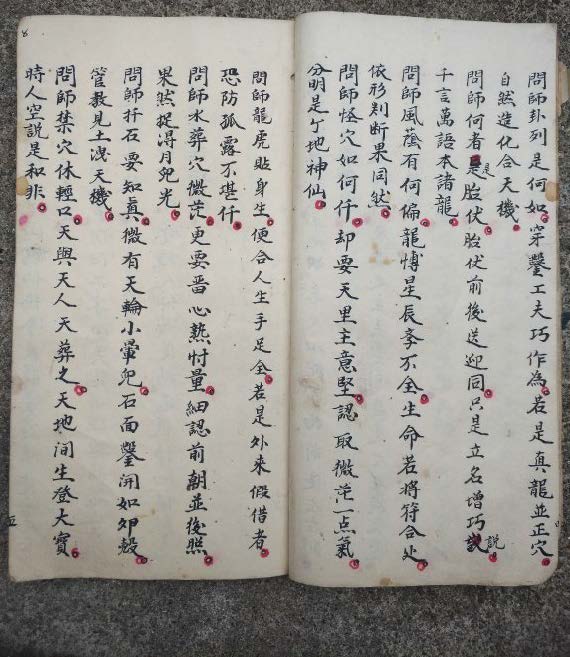 問師卦列是何如穿鑿工夫巧作為若是真龍並正穴
自然造化合天機
問師何者是胎伏胎伏前後送迎同只是立名增巧說
千言萬語本諸龍
問師風蔭有何偏龍愽星辰夌不全生命若將符合处
依形判断果同然
問師怪穴如何仟却要天里主意堅認取微茫一点氣
分明是个地神仙
問師龍虎貼身生便合人生手足全若是外来假借者
恐防孤露不堪仟
問師水葬穴微茫更要畨心㷱忖量細認前朝並後照
果然捉淂月兜光
問師扦石要知眞微有天輪小暈兜石面鑿開如夘殼
管教見土洩天機
問師禁穴休輕口天與天人天葬之天地间生登大寳
時人空説是和非
五